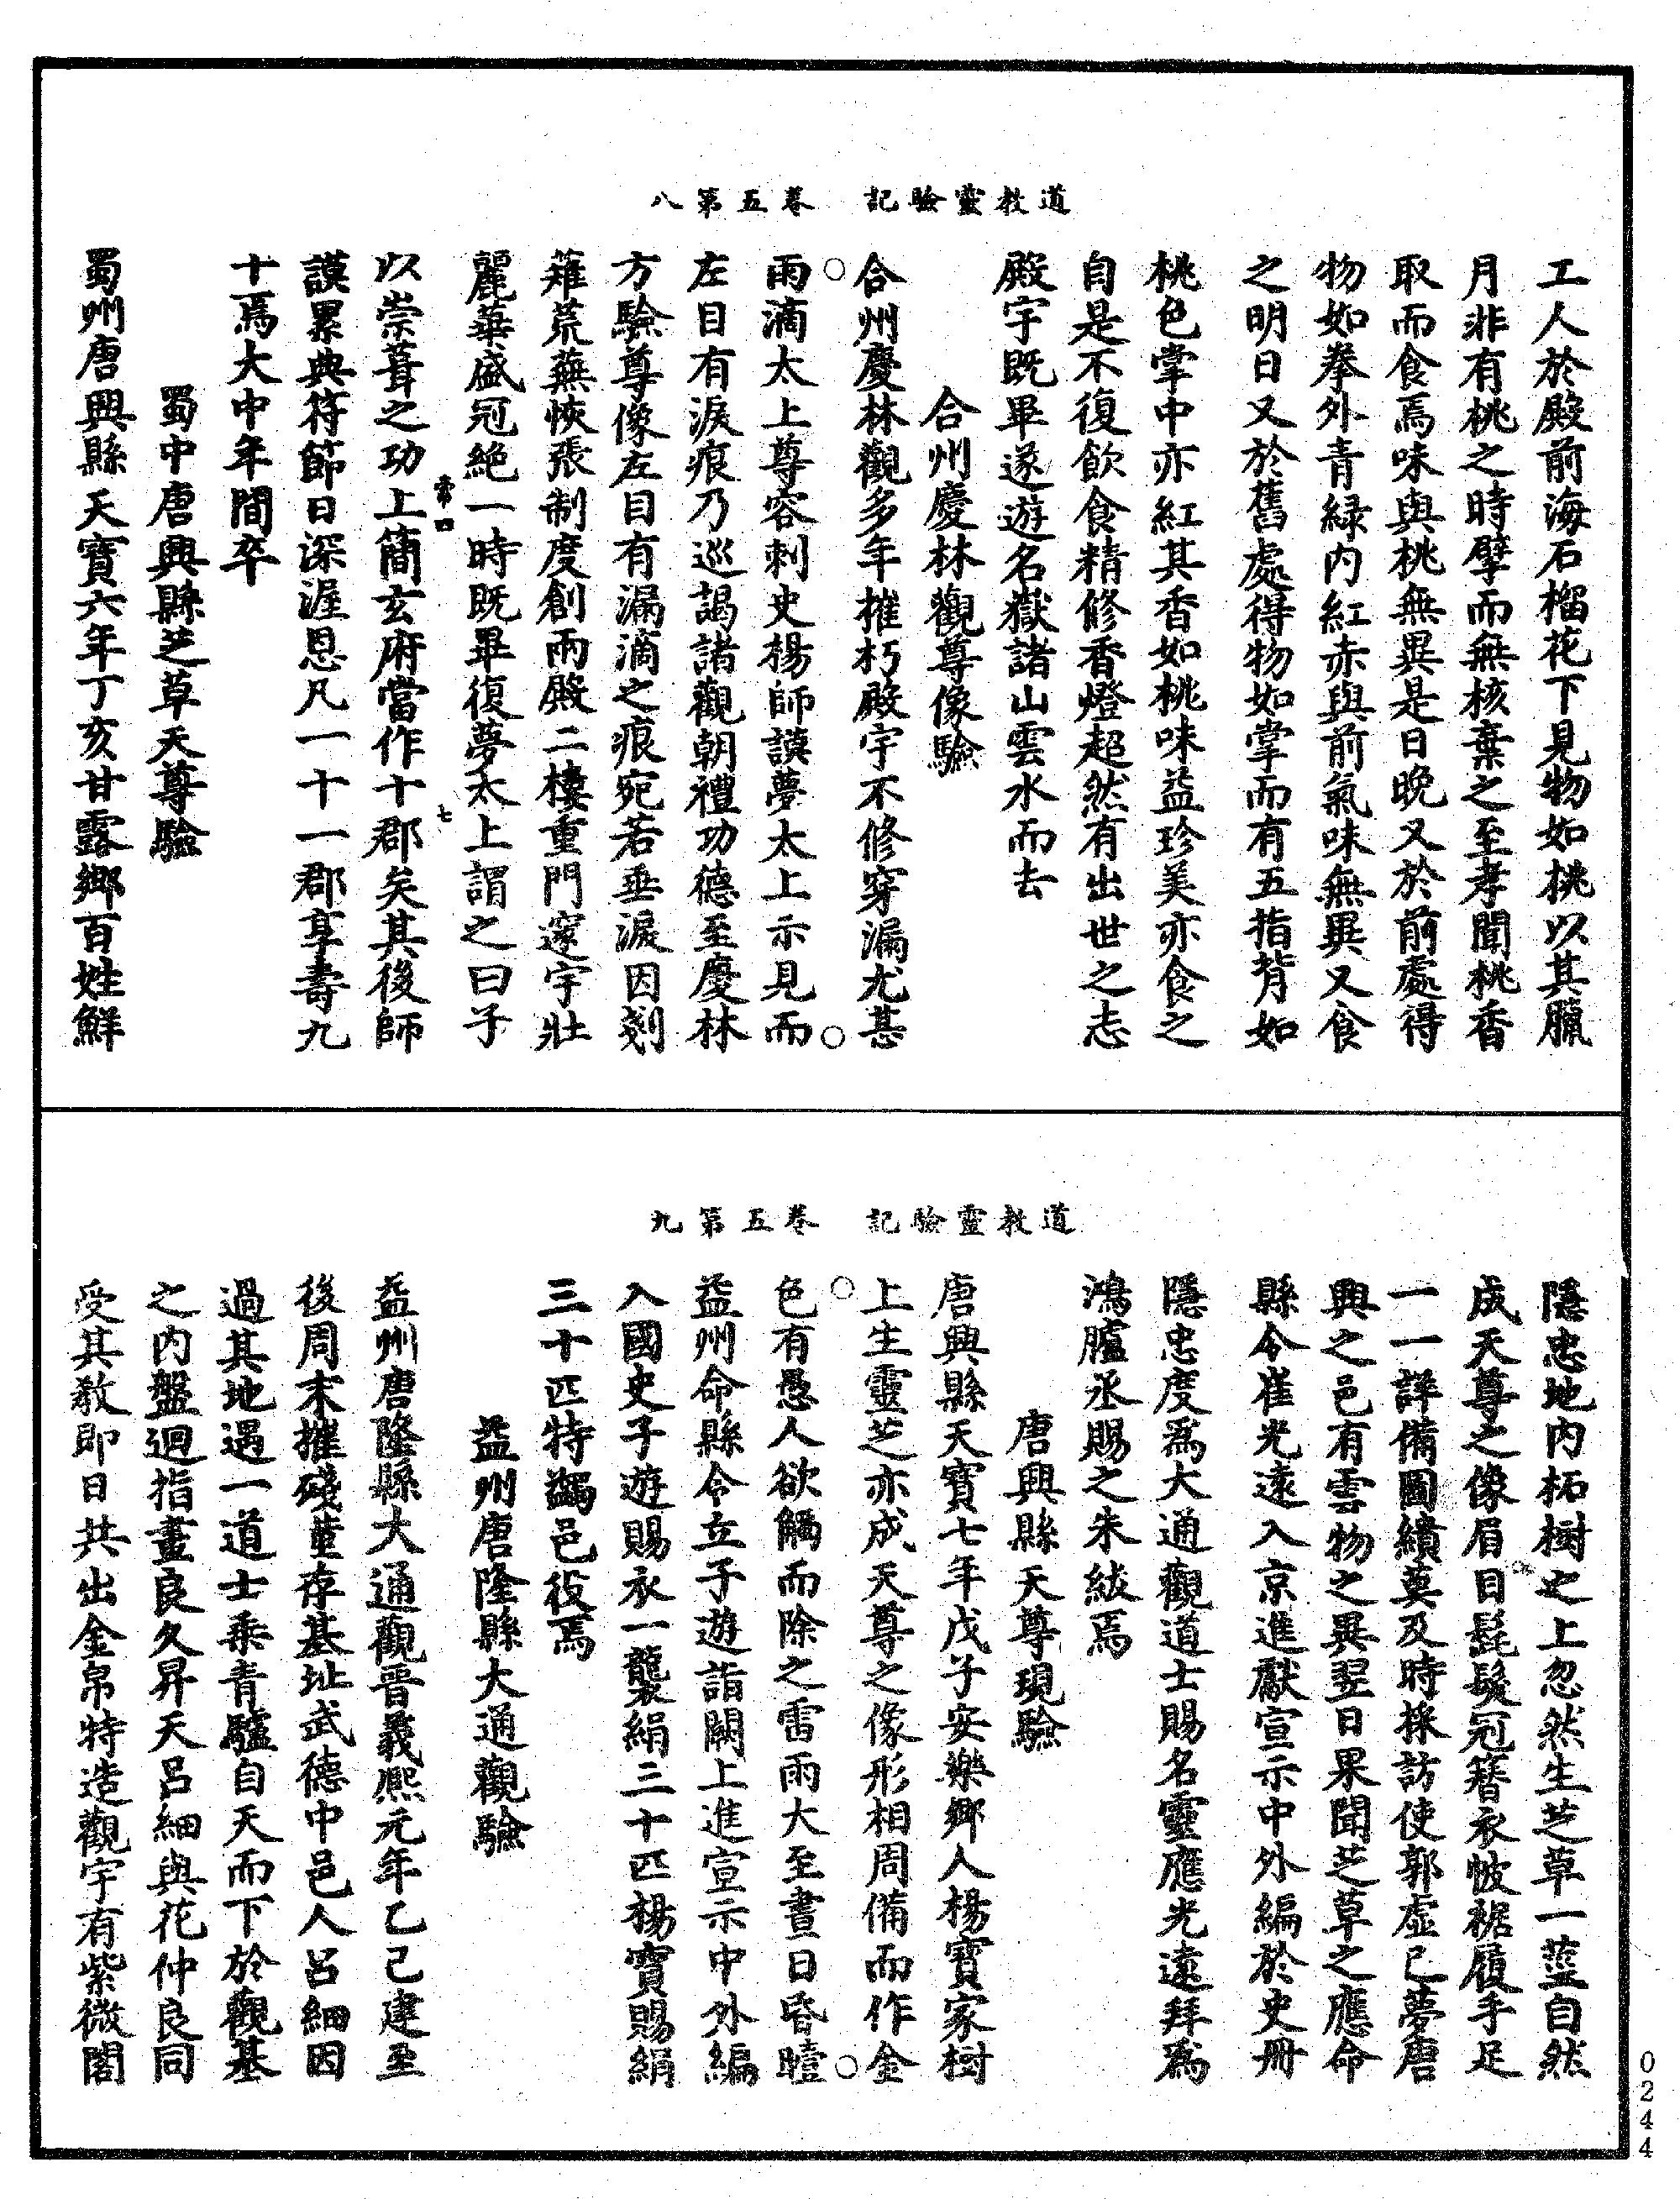 道教靈驗記　卷五第八
工人於殿前海石榴花下見物如桃以其臘
月非有桃之時擘而無核棄之至孝聞桃香
取而食焉味與桃無異是日晚又於前處得
物如拳外青緑内紅赤與前氣味無異又食
之明日又於舊處得物如掌而有五指背如
桃色掌中亦紅其香如桃味益珍美亦食之
自是不復飲食精修香燈超然有出世之志
殿宇既畢遂遊名嶽諸山雲水而去
合州慶林觀尊像驗
合州慶林觀多年摧朽殿宇不修穿漏尤甚
雨滴太上尊容刺史楊師謨夢太上示見而
左目有淚痕乃巡謁諸觀朝禮功德至慶林
方驗尊像左目有漏滴之痕宛若垂淚因剗
薙荒蕪恢張制度創兩殿二樓重門邃宇壯
麗華盛冠絶一時既畢復夢太上謂之曰子
常四
七
以崇葺之功上簡玄府當作十郡矣其後師
謨累典符節日深渥恩凡一十一郡享壽九
十焉大中年間卒
蜀中唐興縣芝草天尊驗
蜀州唐興縣天寶六年丁亥甘露鄉百姓鮮
道教靈驗記　卷五第九
隱忠地内柘樹之上忽然生芝草一莖自然
成天尊之像眉目髭髮冠簪衣帔裾履手足
一一詳備圖繢莫及時採訪使郭虚己夢唐
興之邑有雲物之異翌日果聞芝草之應命
縣令崔光遠入京進獻宣示中外編於史册
隱忠度為大通觀道士賜名靈應光遠拜為
鴻臚丞賜之朱紱焉
唐興縣天尊現驗
唐興縣天寶七年戊子安樂鄉人楊寶家樹
上生靈芝亦成天尊之像形相周備而作金
色有愚人欲觸而除之雷雨大至晝日昏曀
益州命縣令立子遊詣闕上進宣示中外編
入國史子遊賜衣一襲絹三十匹楊寶賜絹
三十匹特蠲邑役焉
益州唐隆縣大通觀驗
益州唐隆縣大通觀晉義熙元年乙巳建至
後周末摧殘堇存基址武德中邑人呂細因
過其地遇一道士乘青驢自天而下於觀基
之内盤迴指畫良久昇天呂細與花仲良同
受其教即日共出金帛特造觀宇有紫微閣
0244